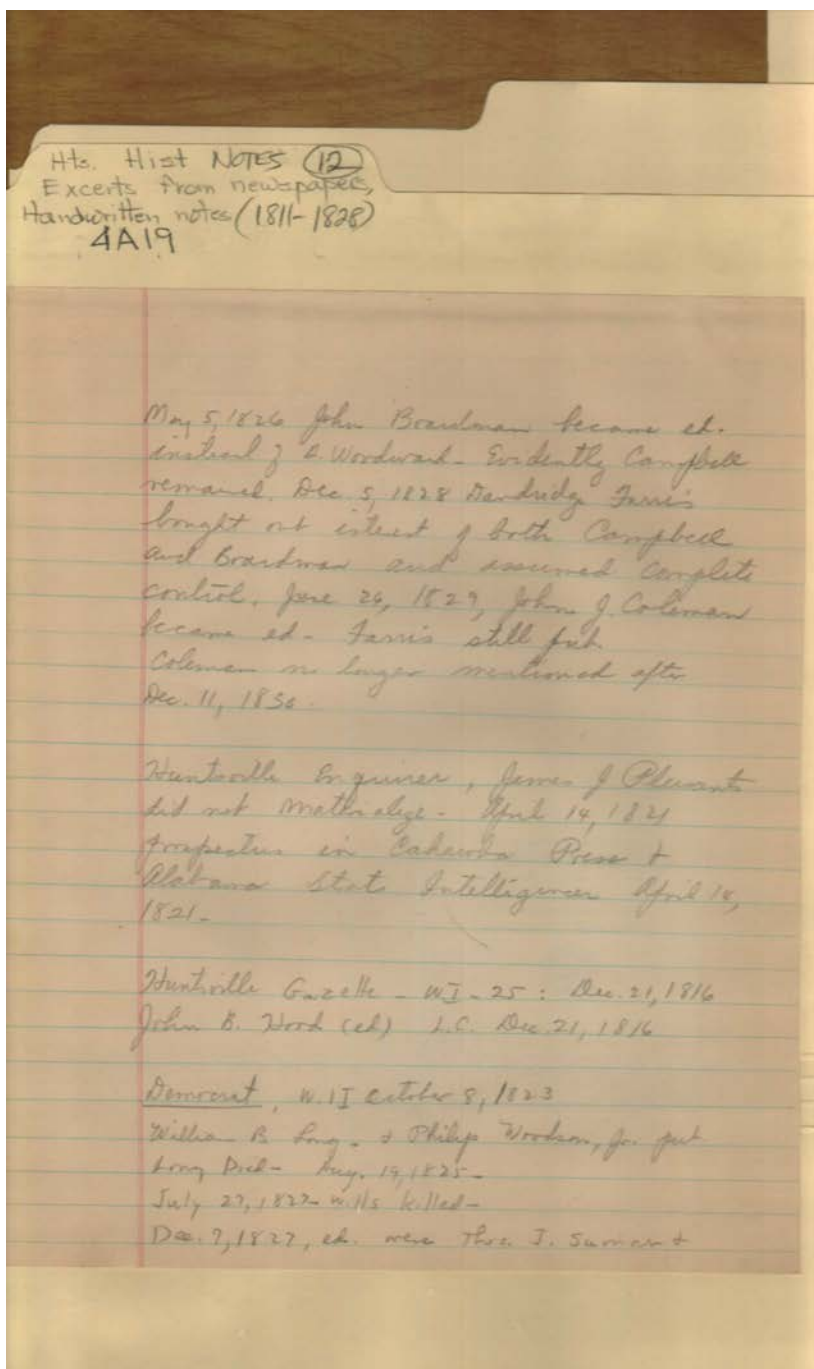 Hts. Hist NOTES (12)
Excerts from newspapers,
Handwritten notes (1811-1828)
4A19
May 5, 1826 John Boardman became ed.
instead of Woodward - Evidently Campbell
remained. Dec. 5, 1828 Dandridge Farris
bought out interest of both Campbell
and Boardman and assumed complete
control. June 26, 1829, John J. Coleman
became ed - Farris still pub.
Coleman no longer mentioned after
Dec. 11, 1830.
Huntsville Enquirer, James J Pleasants
did not materialize - April 14, 1821
prospectus in Cahawba Press &
Alabama State Intelligencer April 14,
1821 -
Huntsville Gazette - 25 : Dec. 21, 1816
John B. Hood (ed) L.C. Dec. 21, 1816
Democrat, October 8, 1823
William B Long - & Philip Woodson, Jr. pub
Long Died - Aug. 19, 1825 -
July 27, 1827 - Wills killed -
Dec. 7, 1827, ed. were Thos. J. Sumner &